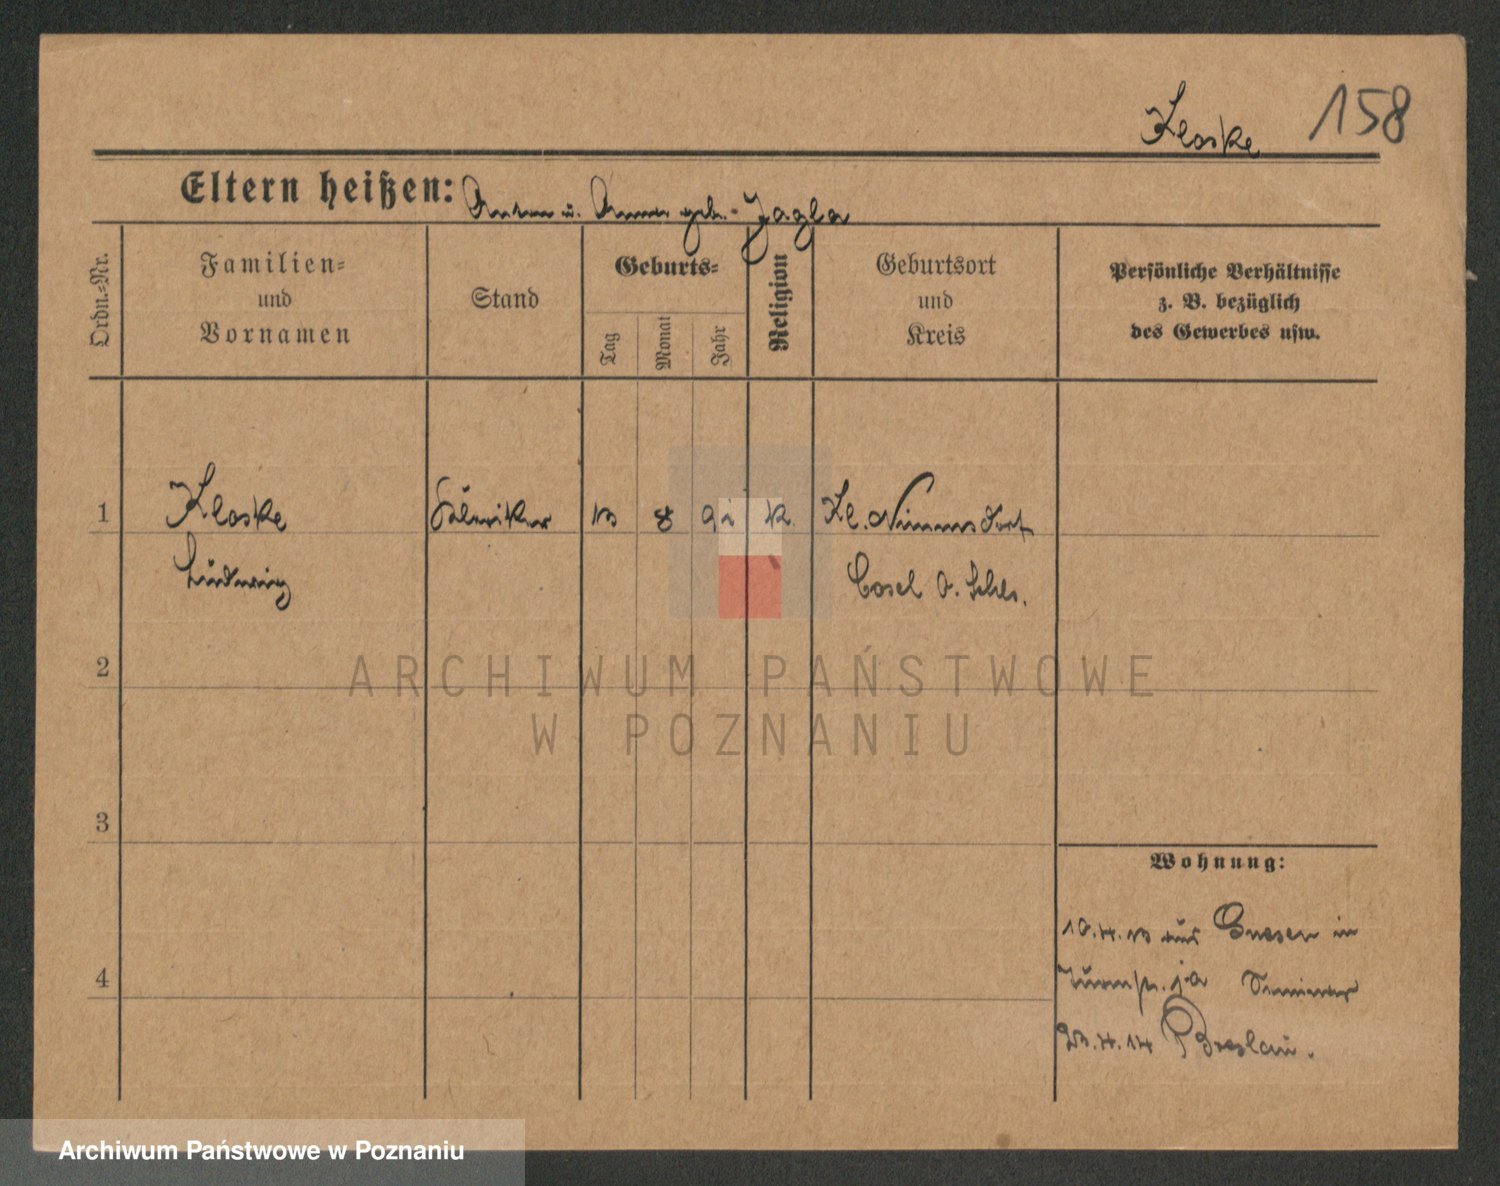 Kloske 158
Eltern heißen: Anton u. Anna geb. Jagla
Ordn.-Nr.
Familien-
und
Vornamen
Stand
Geburts-
Tag
Monat
Jahr
Religion
Geburtsort
und
Kreis
Persönliche Verhältnisse
z. B. bezüglich
des Gewerbes usw.
1 Kloske 8 k. Kl. Nimmsdorf
Ludwig Cosel O. Schls.
2
3
Wohnung:
10.4.13 aus Gnesen in
4
Turmstr. Seminar
14 Breslau.
ARCHIWUM PAŃSTWOWE
W POZNANIU
Archiwum Państwowe w Poznaniu